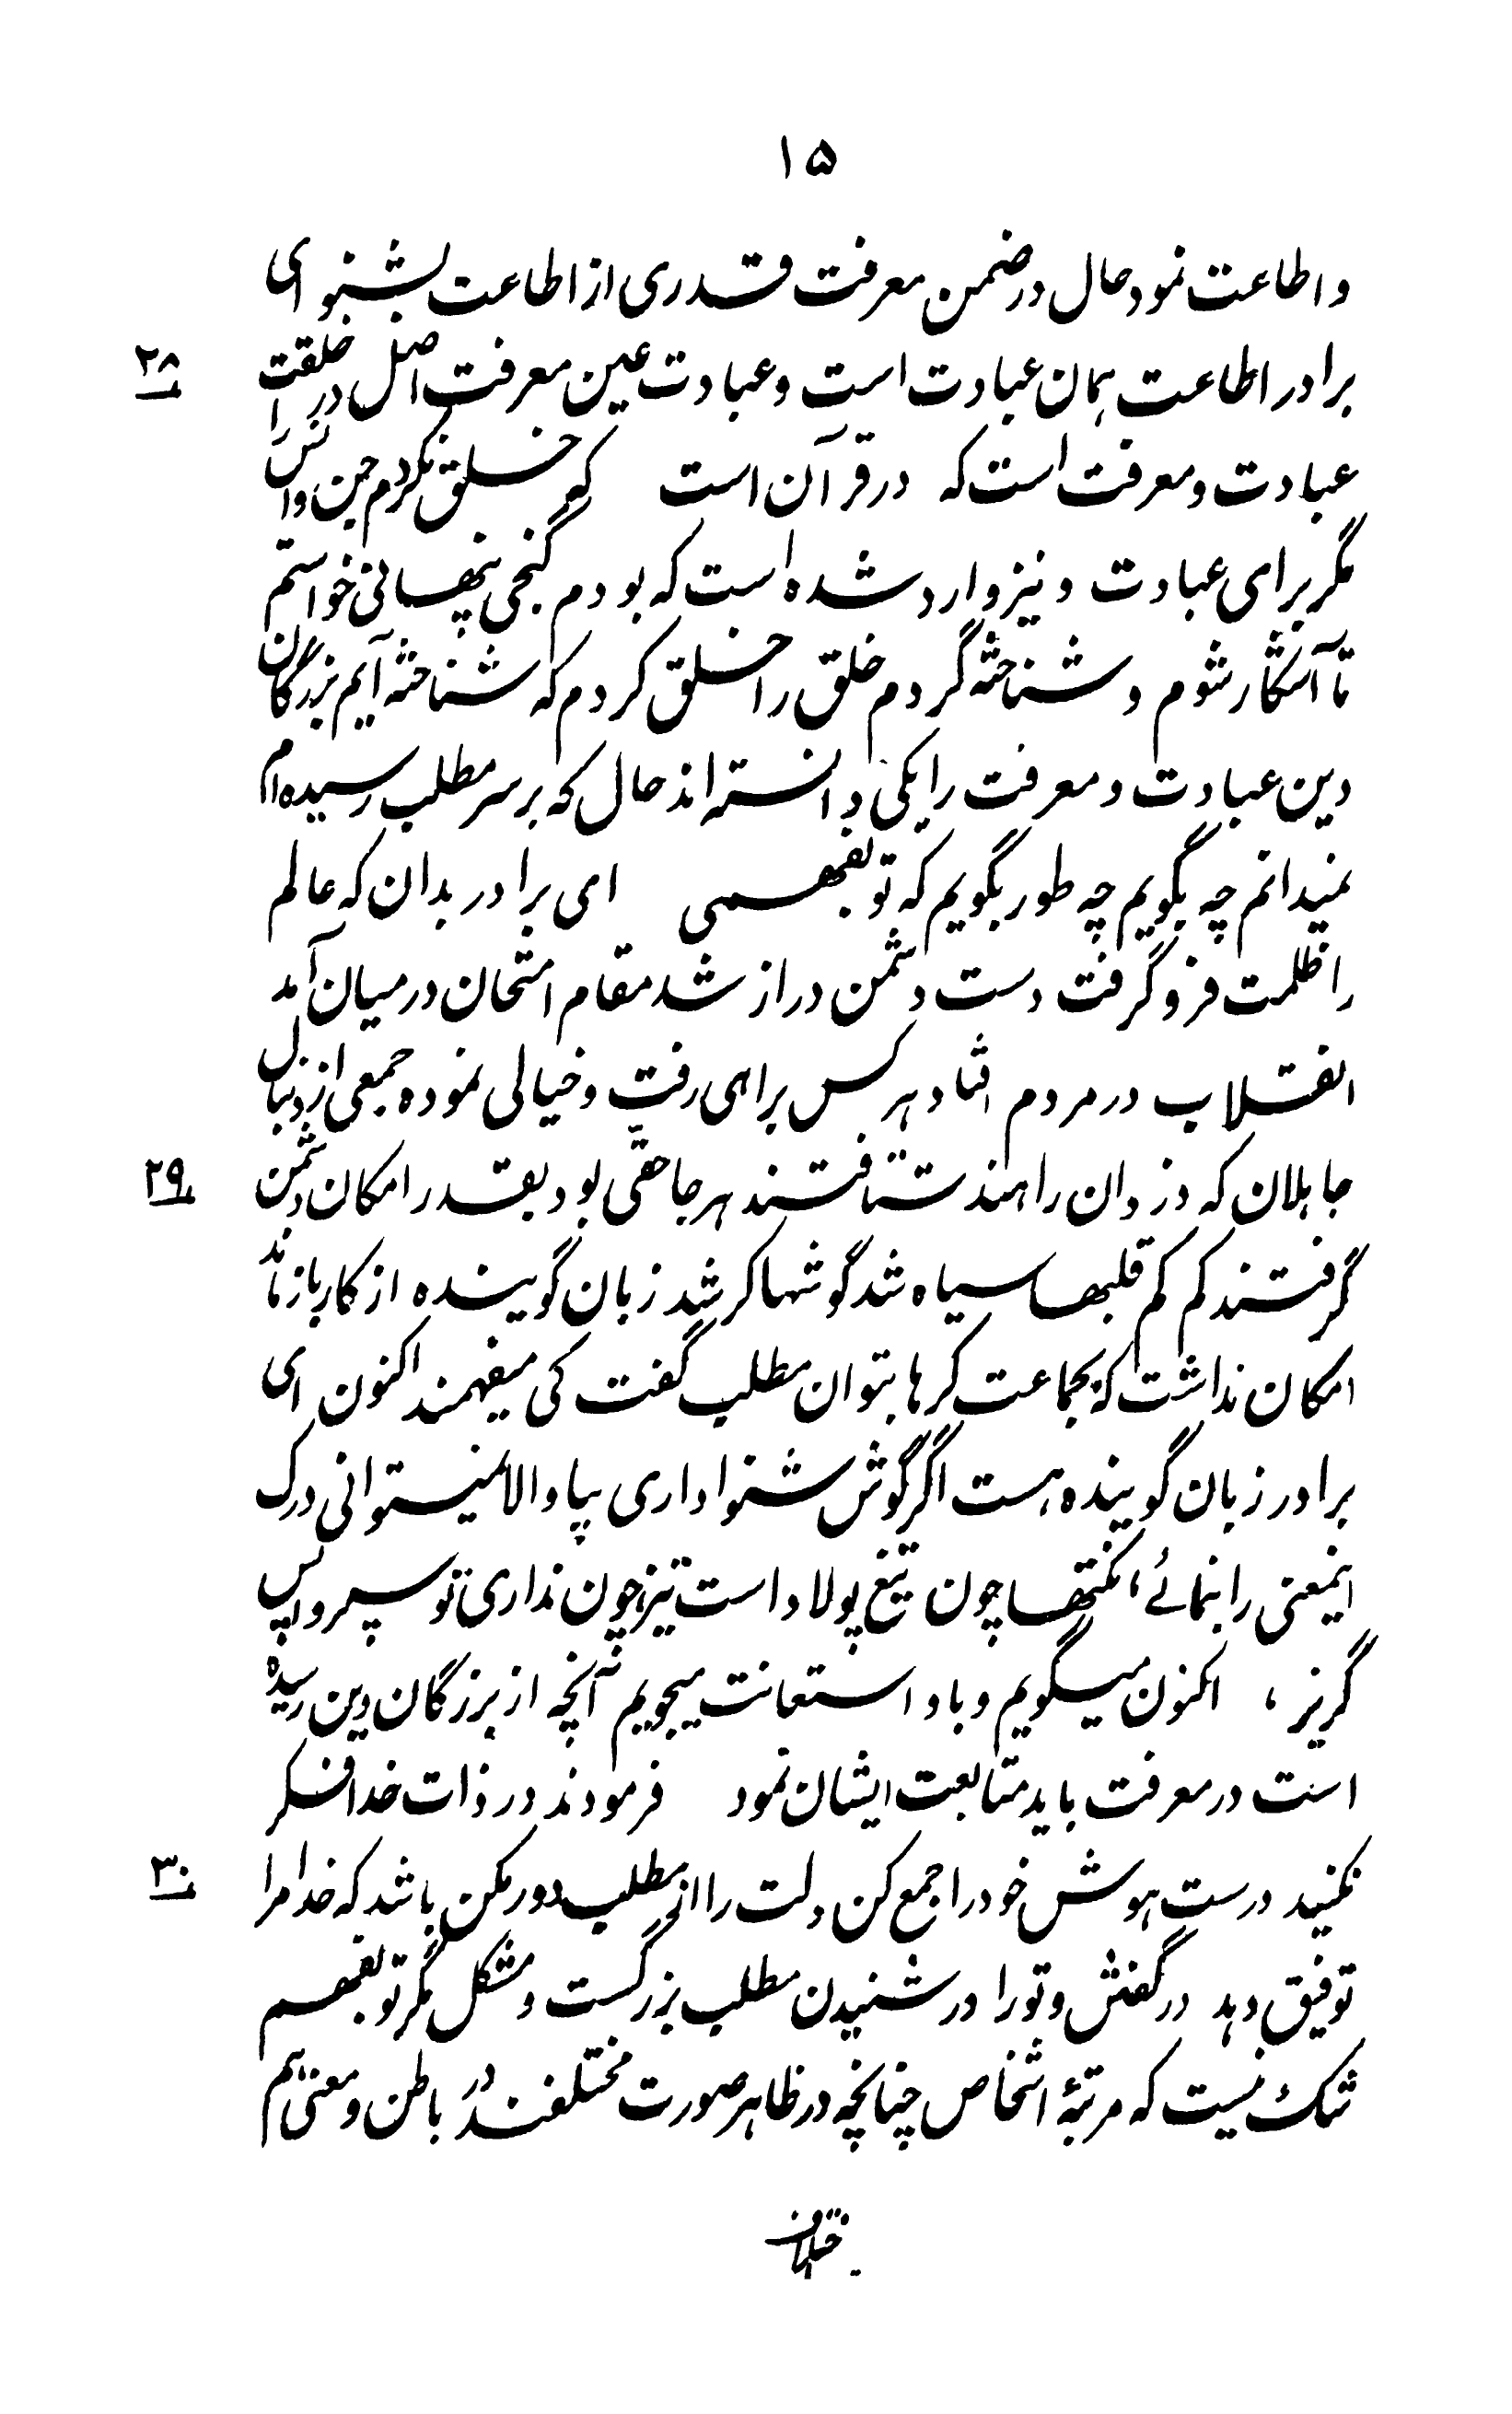 ۱۵
و اطاعت نمود حال در ضمن معرفت قدری از اطاعت بشنو ای
برادر اطاعت همان عبادت است و عبادت عین معرفت اصل در خلقت
۲۸
عبادت و معرفت است که در قرآن است که خلق نکردم جن و انس را
مگر برای عبادت و نیز وارد شده است که بودم گنجی پنهانی خواستم
تا آشکار شوم و شناخته گردم خلق را خلق کردم که شناخته آیم بزرگان
دین عبادت و معرفت را یکی دانسته اند حال که بر سر مطلب رسیده ام
نمیدانم چه بگویم چه طور بگویم که تو بفهمی ای برادر بدان که عالم
را ظلمت فرو گرفت دست دشمن دراز شد مقام امتحان در میان آمد
انقلاب در مردم افتاد هر کس براهی رفت و خیالی نموده جمعی از دنبال
جاهلان که دزدان راهند شتافتند هر جا حقی بود بقدر امکان دشمن
۲۹
گرفتند کم کم قلبها سیاه شد گوشها کر شد زبان گوینده از کار باز ماند
امکان نداشت که بجماعت کرها بتوان مطلب گفت کی میفهمند اکنون ای
برادر زبان گوینده هست اگر گوش شنوا داری بیا و الا نمیتوانی درک
اینمعنی را بنمائی، نکتها چون تیغ پولاد است تیز چون نداری تو سپر واپس
گریز ، اکنون میگویم و باو استعانت میجویم آنچه از بزرگان دین رسیده
است در معرفت باید متابعت ایشان نمود فرمودند در ذات خدا فکر
نکنید درست هوش خود را جمع کن دلت را از مطلب دور مکن باشد که خدا مرا
۳۰
توفیق دهد در گفتن و تو را در شنیدن مطلب بزرگست و مشکل مگر تو بفهم
شک نیست که مرتبۀ اشخاص چنانچه در ظاهر صورت مختلفند در باطن و معنی هم